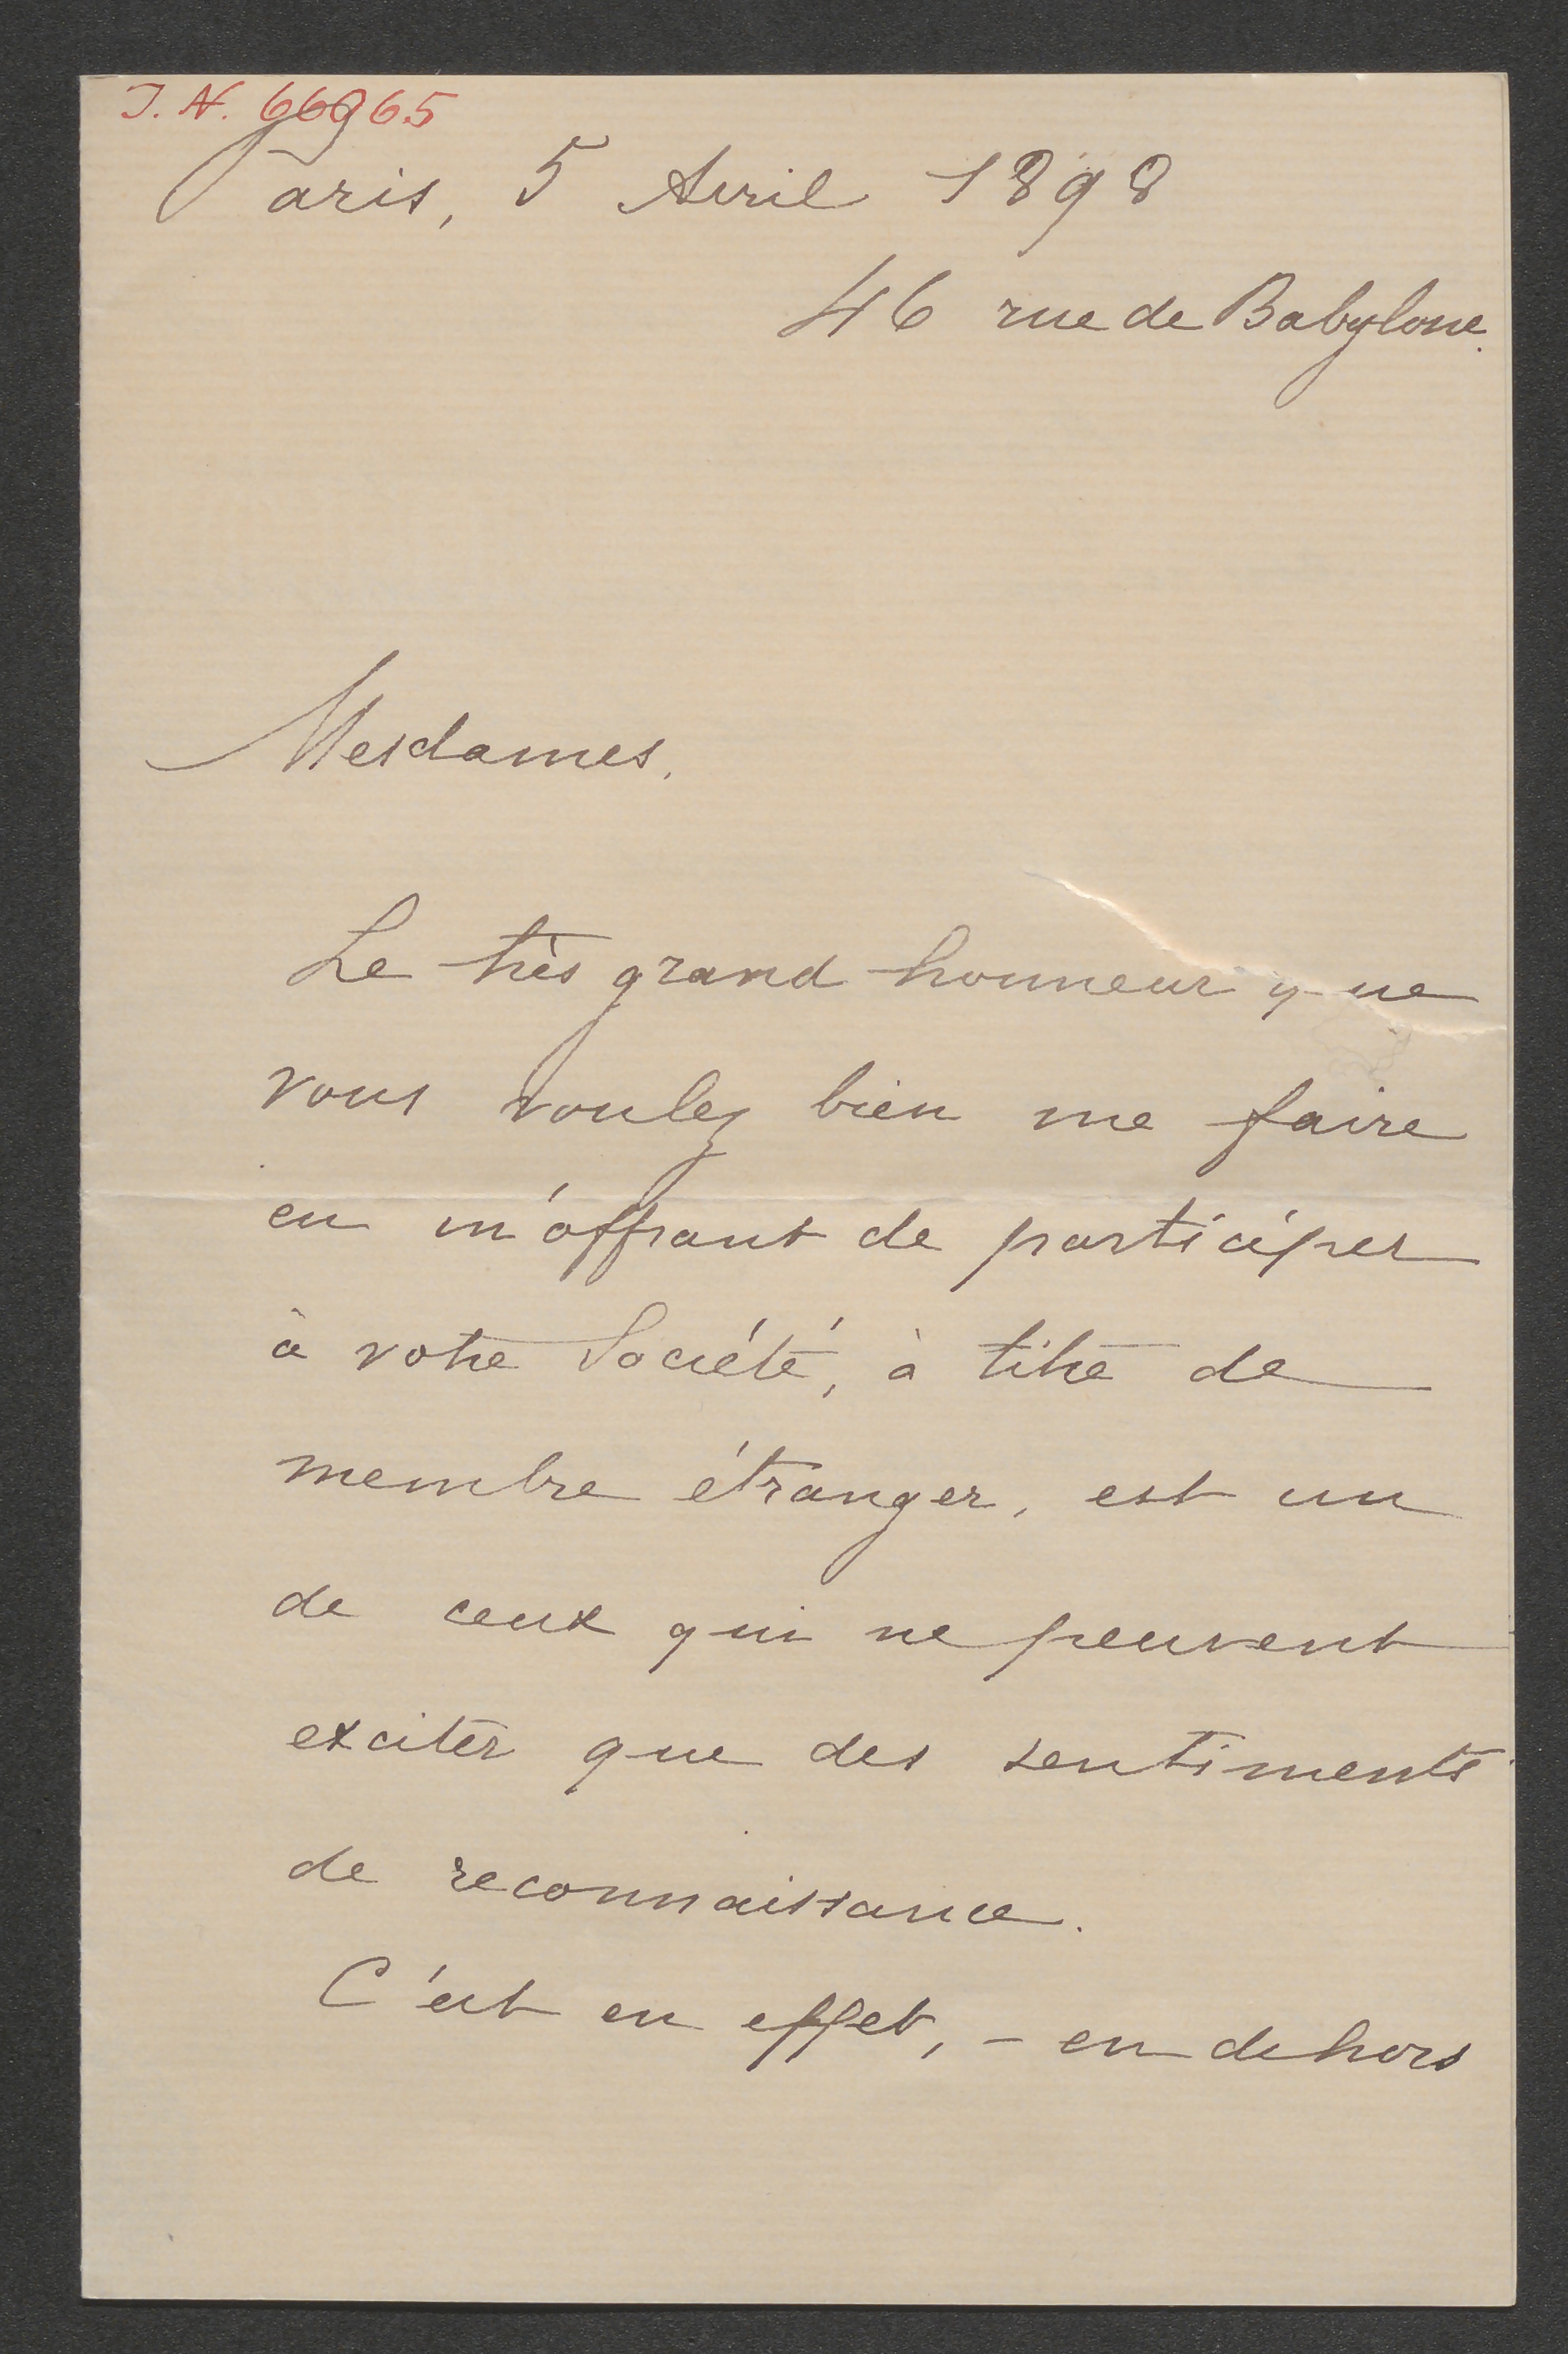 J. N. 66965
Paris, 5 Avril 1898
46 rue de Babylone.
Mesdames,
Le très grand honneur que
vous voulez bien me faire
en m'offrant de participer
à votre Société, à titre de
membre étranger, est un
de ceux qui ne peuvent
exciter que des sentiments
de reconnaissance.
C'est en effet, - en dehors